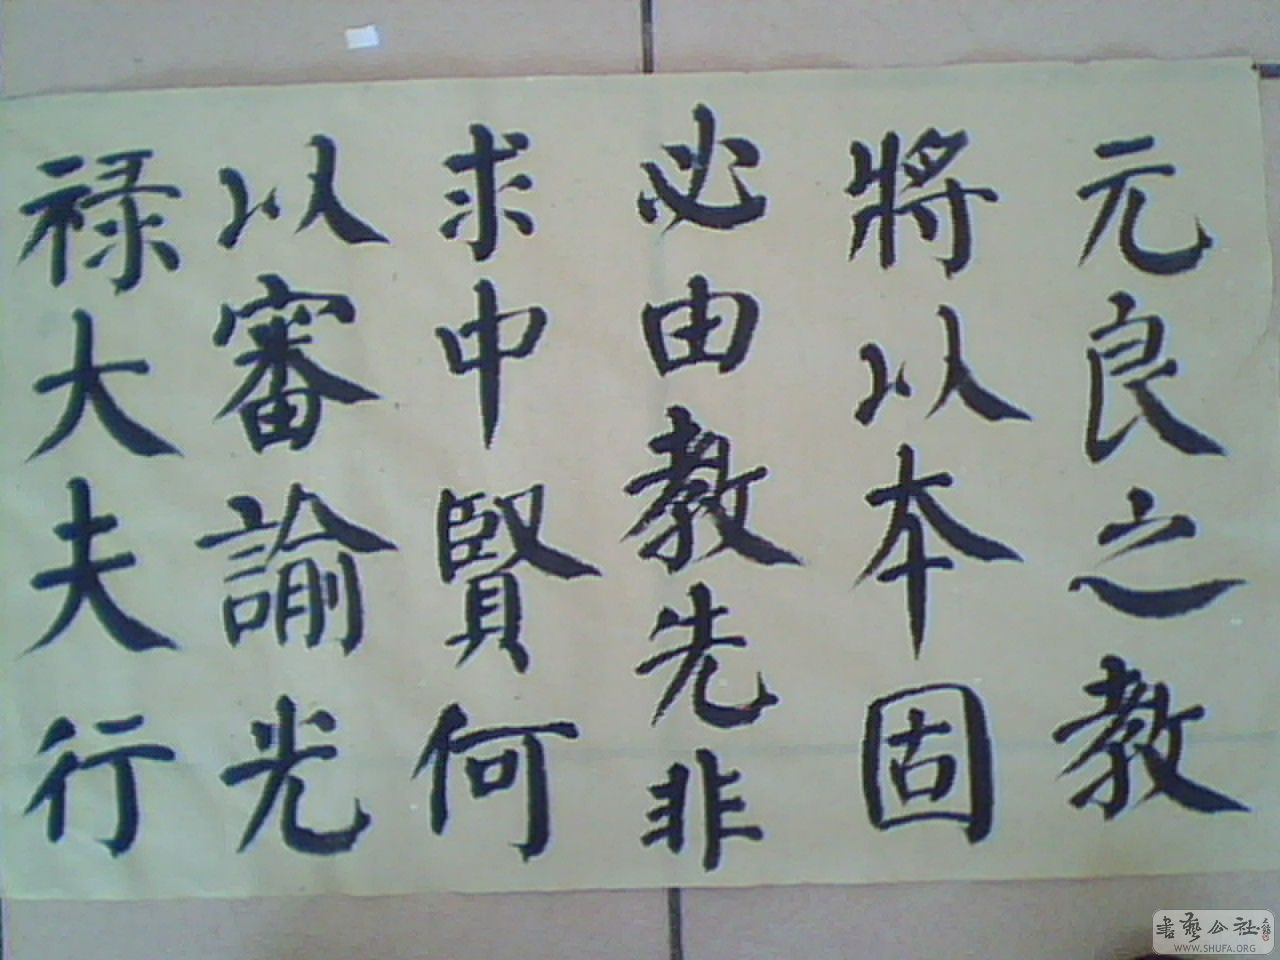 元良之教
將以本固
必由教先非
求中賢何
以審諭光
禄大夫行
書藝公社
WWW.SHUFA.ORG